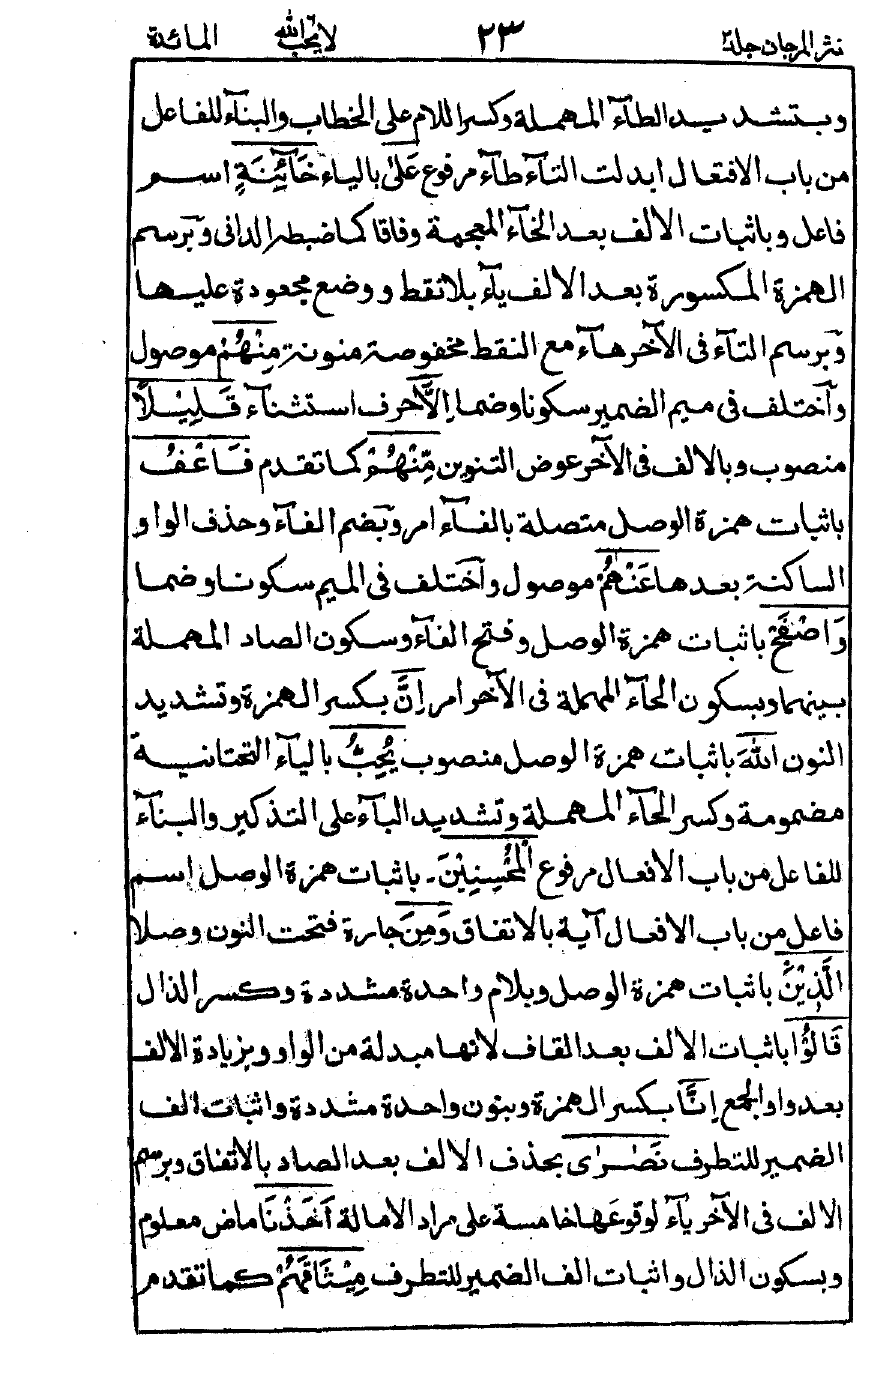 نثر المرجان جلد۲ ۲۳ لا يحب الله المائدة
وبتشديد الطآء المهملة وكسر اللام على الخطاب والبنآء للفاعل
من باب الافتعال ابدلت التآء طآء مرفوع عَلٰى بالياء خَآئِنَةٍ اسم
فاعل وباثبات الالف بعد الخآء المعجمة وفاقا كما ضبطه الدانى وبرسم
الهمزة المكسورة بعد الالف يآء بلا نقط ووضع مجعودة عليها
وبرسم التآء فى الآخر هآء مع النقط مخفوضة منونة مِنْهُمْ موصول
وآختلف فى ميم الضمير سكونا وضما اِلَّا حرف استثنآء قَلِيْلًا
منصوب وبالالف فى الآخر عوض التنوين مِّنْهُمْ كما تقدم فَاعْفُ
باثبات همزة الوصل متصلة بالفآء امر وبضم الفآء وحذف الواو
الساكنة بعدها عَنْهُمْ موصول وآختلف فى الميم سكونا وضما
وَاصْفَحْ باثبات همزة الوصل وفتح الفآء وسكون الصاد المهملة
بينهما وبسكون الحآء المهملة فى الآخر امر اِنَّ بكسر الهمزة وتشديد
النون اللّٰهَ باثبات همزة الوصل منصوب يُحِبُّ بالياء التحتانية
مضمومة وكسر الحآء المهملة وتشديد البآء على التذكير والبنآء
للفاعل من باب الافعال مرفوع الْمُحْسِنِيْنَ۔ باثبات همزة الوصل اسم
فاعل من باب الافعال آية بالاتفاق وَمِنَ جارة فتحت النون وصلا
الَّذِيْنَ باثبات همزة الوصل وبلام واحدة مشددة وكسر الذال
قَالُوْٓا باثبات الالف بعد القاف لانها مبدلة من الواو وبزيادة الالف
بعد واو الجمع اِنَّا بكسر الهمزة وبنون واحدة مشددة واثبات الف
الضمير للتطرف نَصٰرٰى بحذف الالف بعد الصاد بالاتفاق وبرسم
الالف فى الآخر يآء لوقوعها خامسة على مراد الامالة اَخَذْنَا ماض معلوم
وبسكون الذال واثبات الف الضمير للتطرف مِيْثَاقَهُمْ كما تقدم